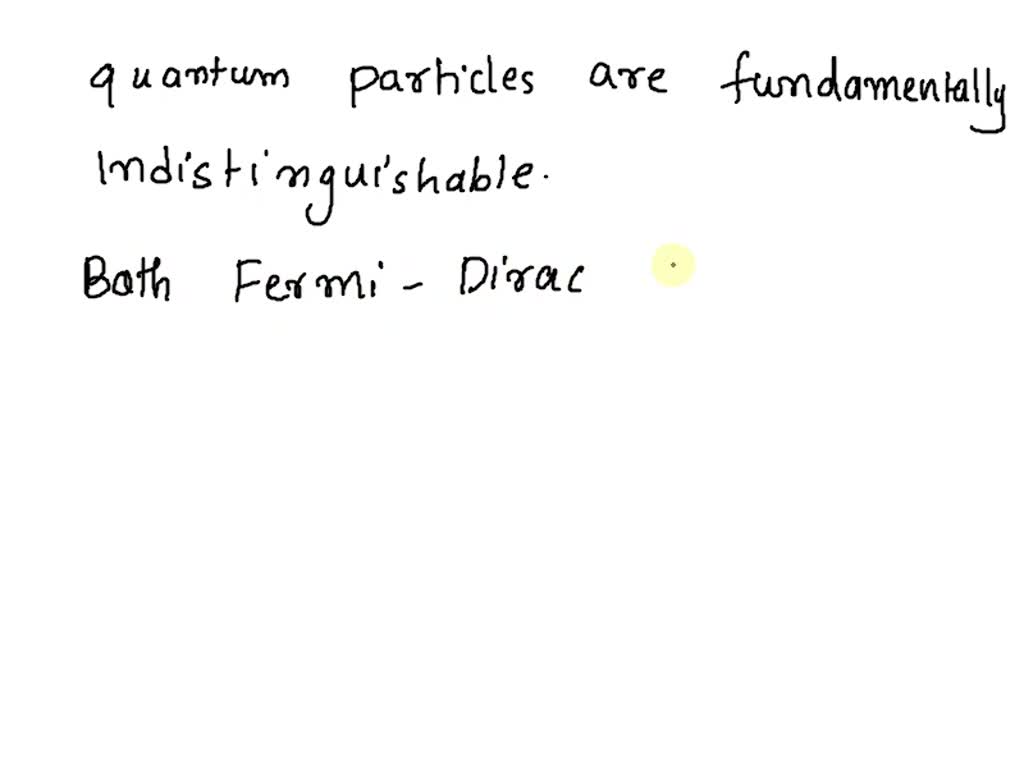 quantum particles are fundamentally
Indistinguishable.
Both Fermi - Dirac